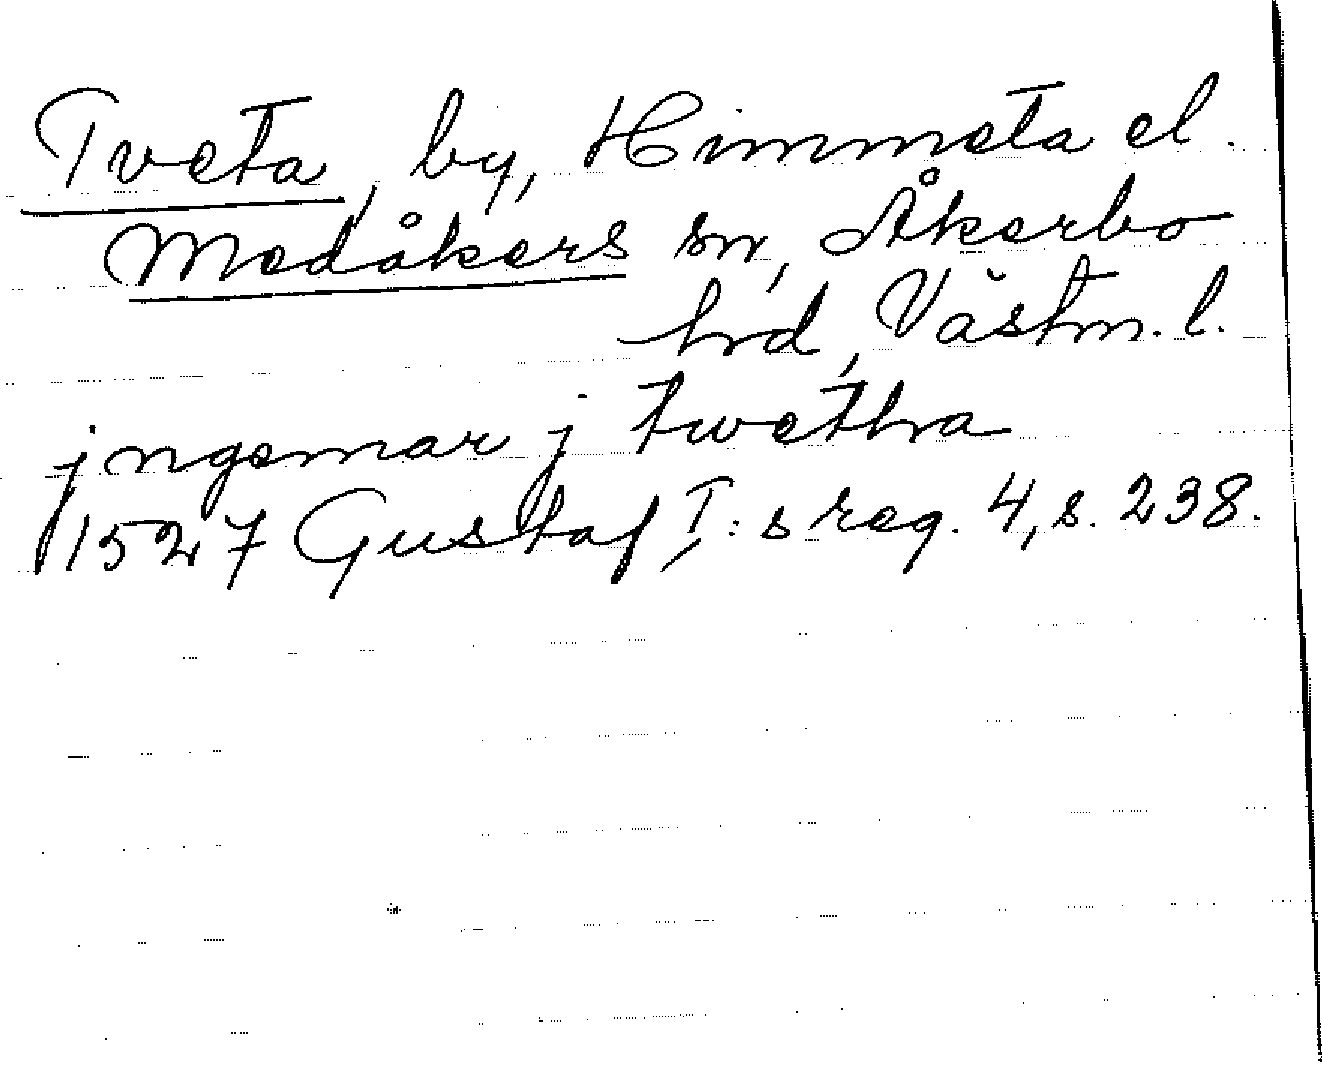 Tveta, by, Himmeta el.
Medåkers sn, Åkerbo
hrd, Västm. l.
jngemar j twetha
1527 Gustaf I:s reg. 4, s. 238.